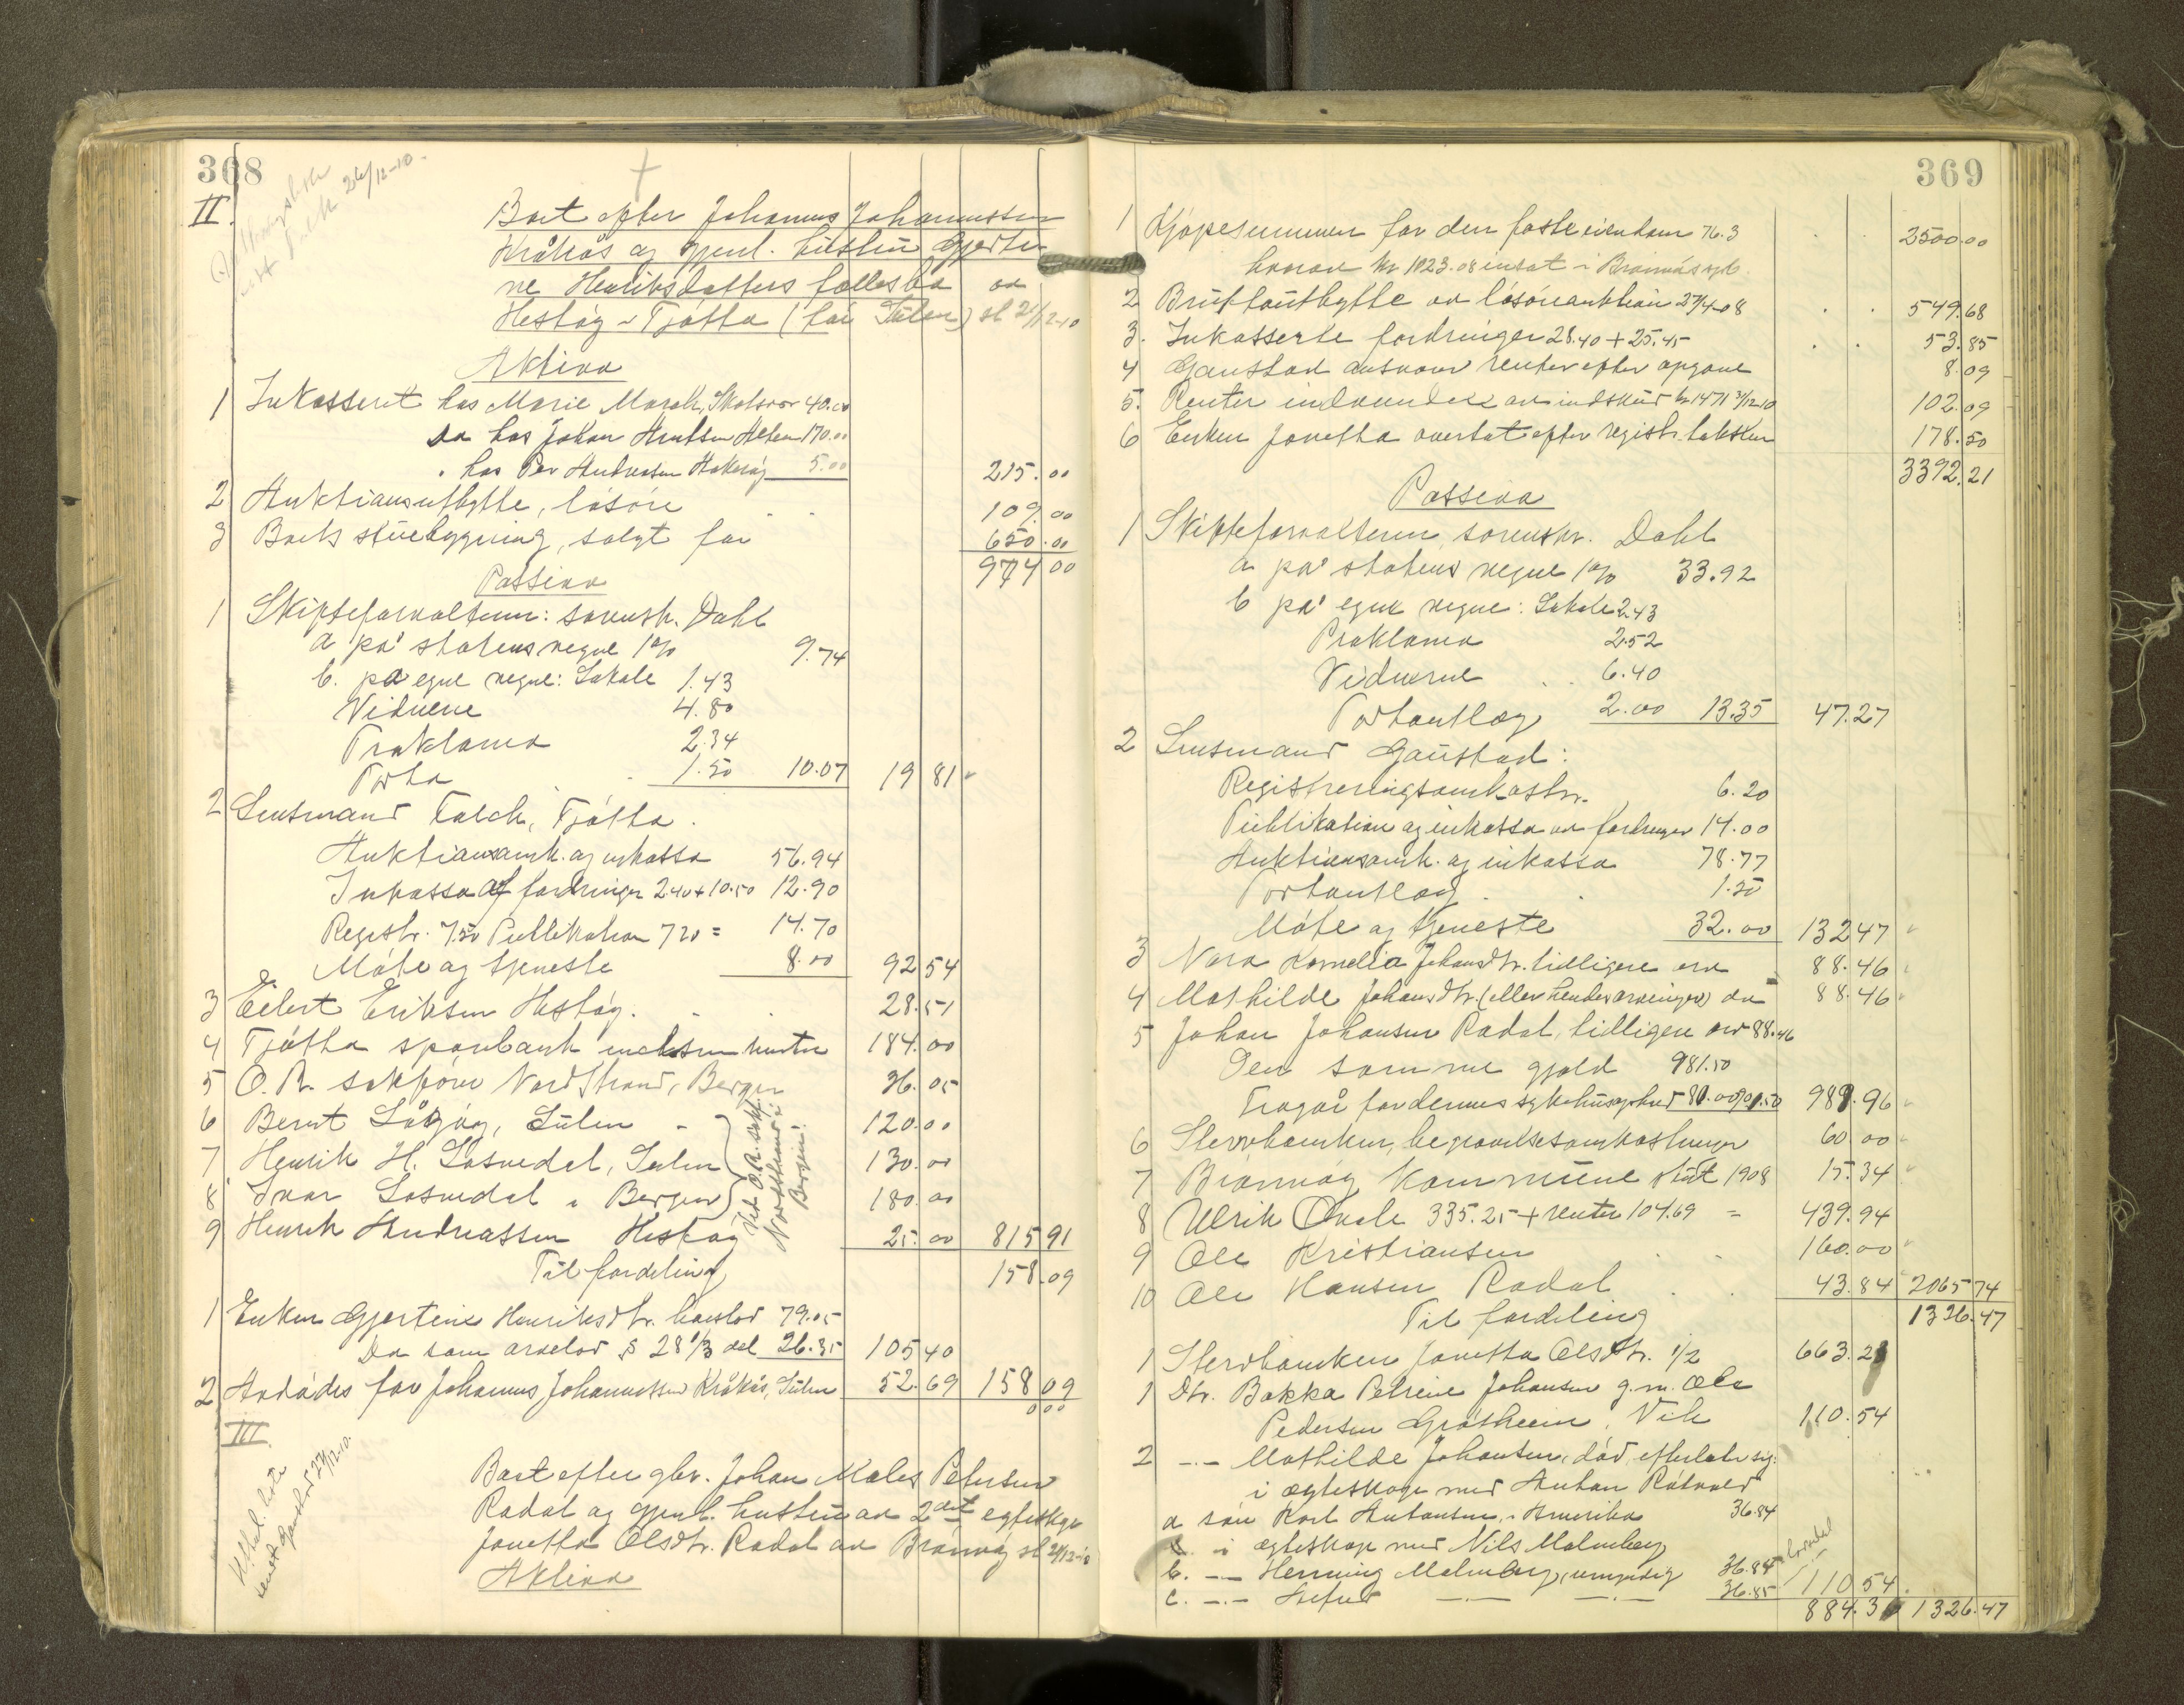 368
II.
Boet efter Johannes Johannessen
Kråkås og gjenl. hustru Gjerti-
ne Henriksdatters fællesbo av
Hestøy - Tjøtta (før Sulen) sl 21/12-10
Aktiva
1 Inkasseret hos Marie Marak, Skotsvær 40.00
Do hos Johan Knutsen Alten 170.00
" hos Per Andreasen Hakerøy 5.00 215.00
2 Auktionsutbytte, løsøre 109.00
3 Boets stuebygning, solgt for 650.00
974 00
Passiva
1 Skifteforvalteren: sorenskr. Dahl
a på statens vegne 1% 9.74
b. på egne vegne: Lokale 1.43
Vidnene 4.80
Proklama 2.34
Porto 1.50 10.07 19 81
2 Lensmand Falch, Tjøtta.
Auktionsomk. og inkasso 56.94
Inkasso af fordringer 2.40 + 10.50 12.90
Registr. 7.50 Publikation 7.20 = 14.70
Møte og tjeneste 8.00 92 54
3 Eilert Eriksen Hestøy. 28.51
4 Tjøtta sparebank veksel m renter 184.00
5 O. R. sakfører Nordstrand, Bergen 36.05
6 Bernt Lågøy, Sulen - 120.00
7 Henrik H. Losnedal, Sulen 130.00
8 Ivar Losnedal i Bergen 180.00
Ved O.R. sakf. Nordstrand i Bergen.
9 Henrik Andreassen Hestøy 25.00 815 91
Til fordeling 158.09
1 Enken Gjertine Henriksdtr. boeslod 79.05
Do som arvelod § 28 1/3 del 26.35 105 40
2 Avdødes far Johannes Johannessen Kråkås, Sulen 52.69 158 09
000
III
Boet efter gbr. Johan Males Petersen
Rødal og gjenl. hustru av 2det egteskap
Jonetta Olsdtr. Rødal av Brønnøy sl 21/12-10
Aktiva
369
1 Kjøpesummen for den faste eiendom 76.3 2500.00
hvorav kr 1023.08 indsat i Brønnøs spb.
2 Bruttoutbytte av løsøreauktion 27/4-08 549.68
3. Inkasserte fordringer 28.40 + 25.45 53.85
4 Gaustad ansvar renter efter opgave 8.09
5. Renter indvundet av indskud kr 1471 3/12-10 102.09
6 Enken Jonetta overtat efter registr. taksten 178.50
3392.21
Passiva
1 Skifteforvalteren, sorenskr. Dahl
a på statens vegne 1% 33.92
b på egne vegne: Lokale 2.43
Proklama 2.52
Vidnerne 6.40
Portoutlæg 2.00 13.35 47.27
2 Lensmand Gaustad:
Registreringsomkostn. 6.20
Publikation og inkasso av fordringer 14.00
Auktionsomk. og inkasso 78.77
Portoutlæg 1.50
Møte og tjeneste 32.00 132 47
3 Nora Kornelia Johansdtr. tidligere arv 88.46
4 Mathilde Johansdtr. (eller hendes arvinger) do 88.46
5 Johan Johansen Rødal, tidligere arv 88.46
Den samme gjæld 981.50
Fragår for dennes sykehusophold 80.00 989.96
6 Stervboenken, begravelsesomkostninger 60 00
7 Brønnøy kommune skat 1908 15.34
8 Ulrik Qvale 335.25 + renter 104.69 = 439.94
9 Ole Kristiansen 160.00
10 Ole Hansen Rødal 43.84 2065 74
Til fordeling 1326.47
1 Stervboenken Jonetta Olsdtr. 1/2 663.2
1 Dtr. Bokka Petrine Johansen g.m. Ole
Pedersen Grøtheim, Vik 110.54
2 -"- Mathilde Johansen, død, efterlater sig:
i egteskap med Anton Råtvold
a søn Karl Antonsen, i Amerika 36.84
i egteskap med Nils Malmberg
b. -"- Henning Malmberg, umyndig 36.84
c. -"- -"- -"- 36.85 110 54
884.3 1326.47